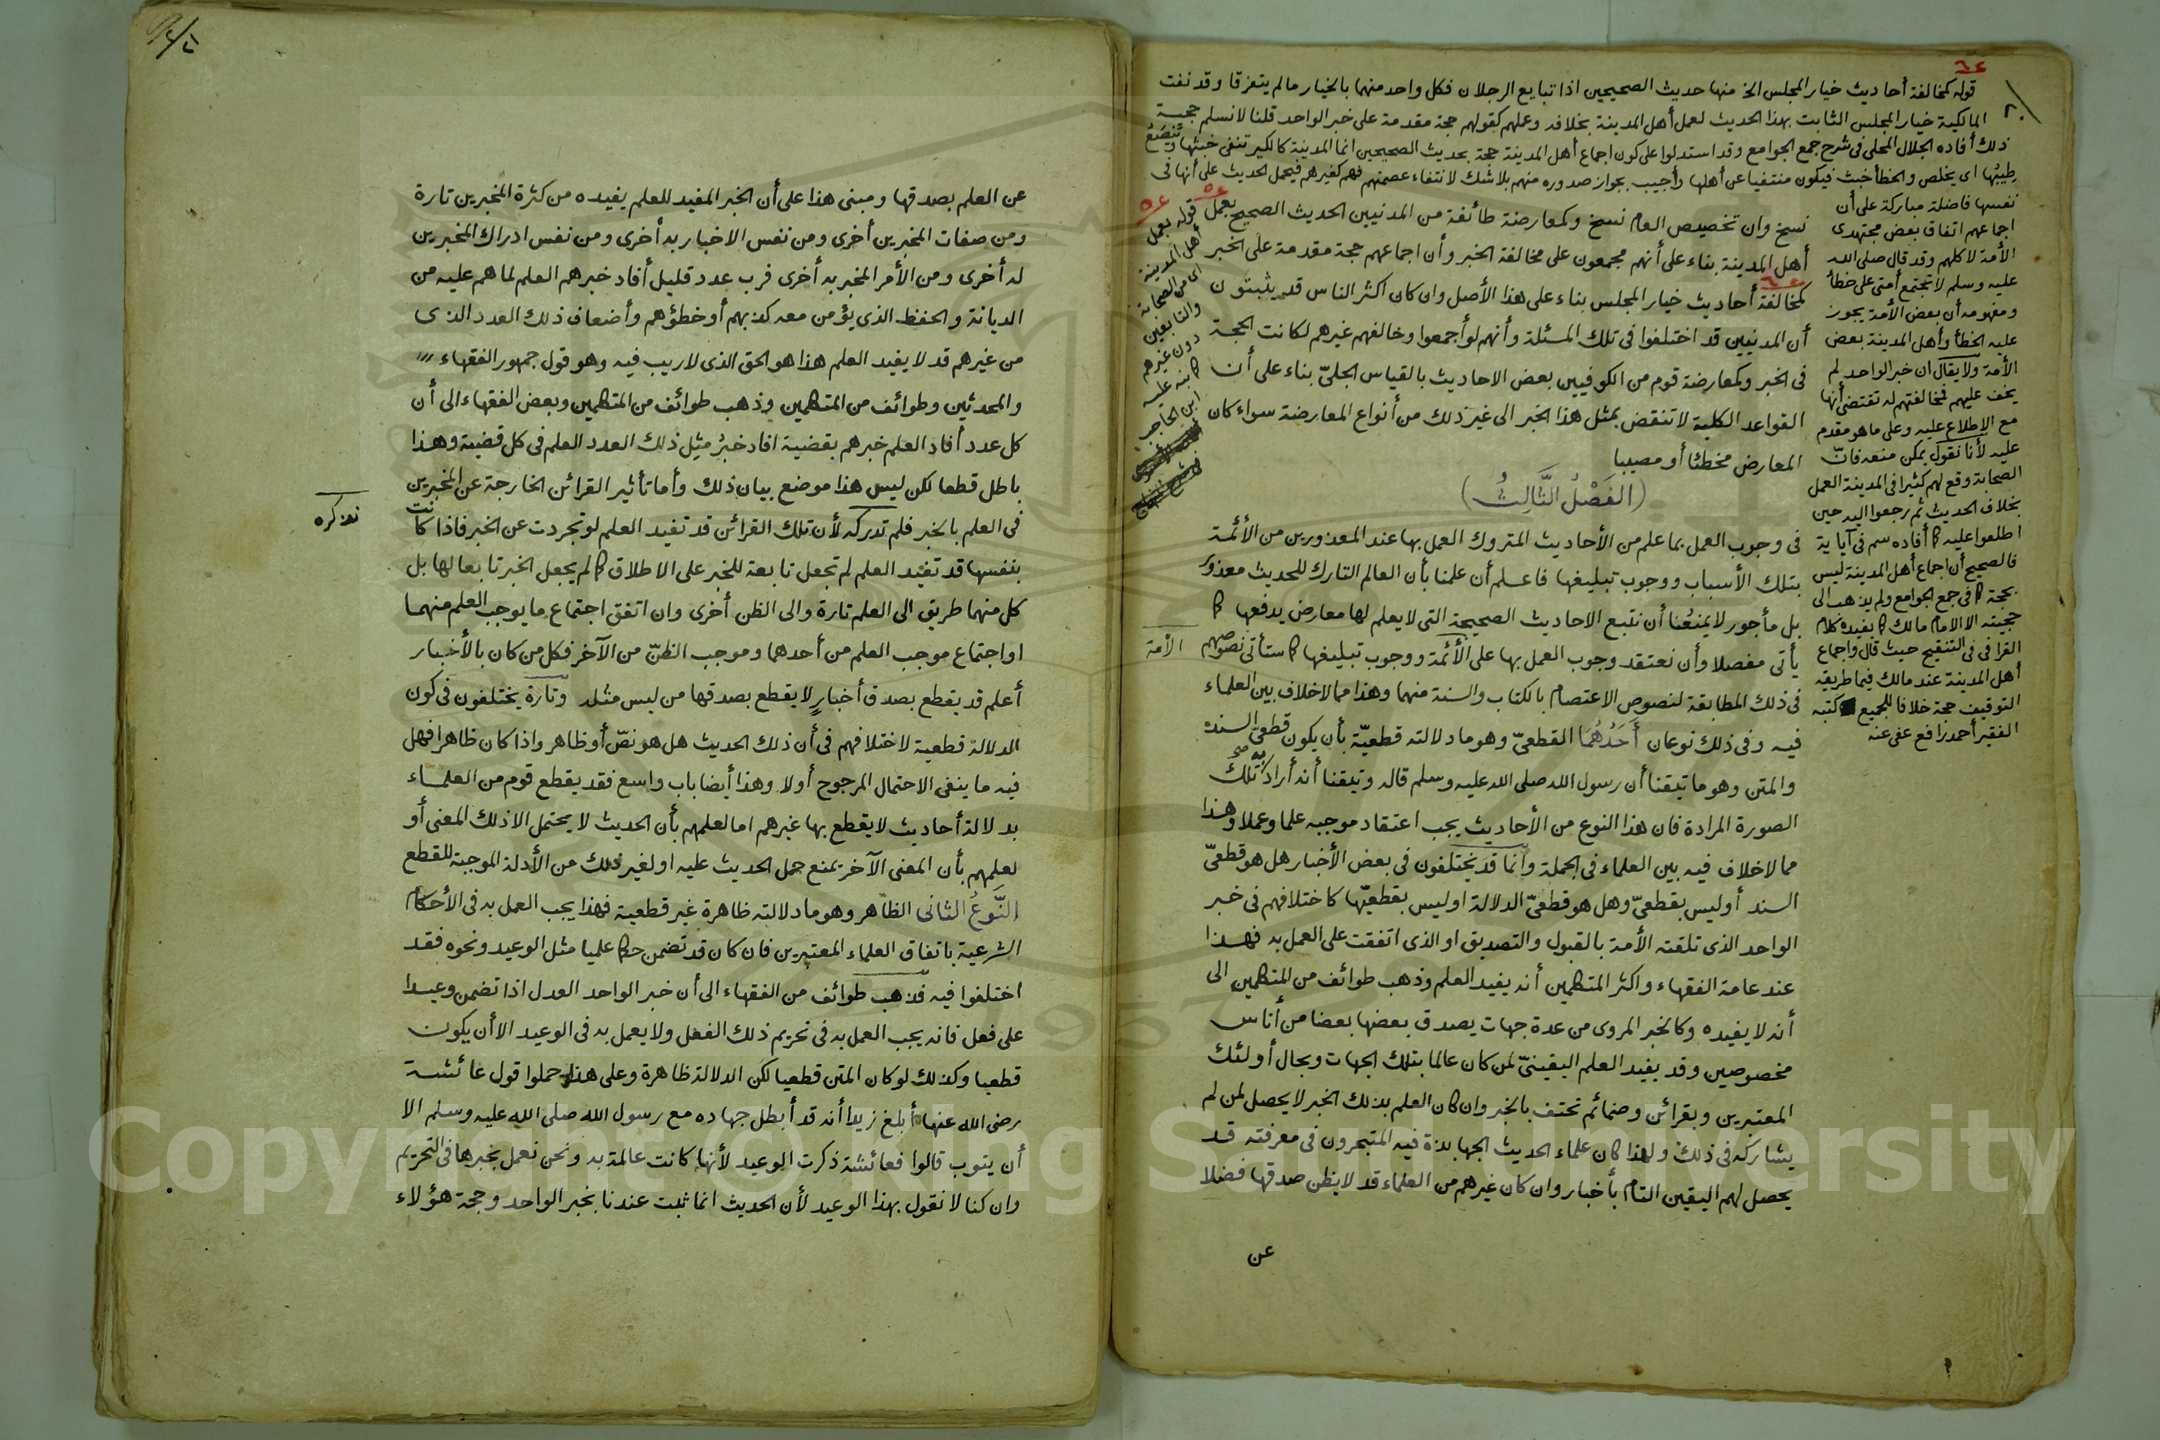 ٦٤
٢٠
قوله كمخالفة أحاديث خيار المجلس الخ منها حديث الصحيحين اذا تبايع الرجلان فكل واحد منهما بالخيار ما لم يتفرقا وقد نفت
المالكية خيار المجلس الثابت بهذا الحديث لعمل أهل المدينة بخلافه وعملهم كقولهم حجة مقدمة على خبر الواحد قلنا لا نسلم حجية
ذلك أفاده الجلال المحلى فى شرح جمع الجوامع وقد استدلوا على كون اجماع أهل المدينة حجة بحديث الصحيحين انما المدينة كالكير تنفى خبثها وتنصع
طيبها اى يخلص والخطأ خبث فيكون منتفيا عن أهلها وأجيب بجواز صدوره منهم بلا شك لانتفاء عصمتهم فهم كغيرهم فيحمل الحديث على أنها فى
نفسها فاضلة مباركة على أن
اجماعهم اتفاق بعض مجتهدى
الأمة لا كلهم وقد قال صلى الله
عليه وسلم لا تجتمع أمتى على خطأ
ومفهومه أن بعض الأمة يجوز
عليه الخطأ وأهل المدينة بعض
الأمة ولا يقال ان خبر الواحد لم
يخف عليهم فمخالفتهم له تقتضى أنها
مع الاطلاع عليه وعلى ما هو مقدم
عليه لأنا نقول يمكن منعه فانّ
الصحابة وقع لهم كثيرا فى المدينة العمل
بخلاف الحديث ثم رجعوا اليه حين
اطلعوا عليه كما أفاده سم فى آياته
فالصحيح أن اجماع أهل المدينة ليس
بحجة كما فى جمع الجوامع ولم يذهب الى
حجيته الا الامام مالك كما يفيده كلام
القرافى فى التنقيح حيث قال واجماع
أهل المدينة عند مالك فيما طريقه
التوقيف حجة خلافا للجميع كتبه
الفقير أحمد رافع عفى عنه
قوله بعمل
أهل المدينة
اى من الصحابة
والتابعين
دون غيرهم
كما نبه عليه
ابن الحاجب
نسخ وان تخصيص العام نسخ وكمعارضة طائفة من المدنيين الحديث الصحيح بعمل
أهل المدينة بناء على أنهم مجمعون على مخالفة الخبر وأن اجماعهم حجة مقدمة على الخبر
كمخالفة أحاديث خيار المجلس بناء على هذا الأصل وان كان اكثر الناس قد يثبتون
أن المدنيين قد اختلفوا فى تلك المسئلة وأنهم لو أجمعوا وخالفهم غيرهم لكانت الحجة
فى الخبر وكمعارضة قوم من الكوفيين بعض الاحاديث بالقياس الجلىّ بناء على أن
القواعد الكلية لا تنقض بمثل هذا الخبر الى غير ذلك من أنواع المعارضة سواء كان
المعارض مخطئا أو مصيبا
(الفَصْلُ الثَّالِثُ)
فى وجوب العمل بما علم من الأحاديث المتروك العمل بها عند المعذورين من الأئمة
بتلك الأسباب ووجوب تبليغها فاعلم أن علمنا بأن العالم التارك للحديث معذور
بل مأجور لا يمنعُنا أن نتبع الاحاديث الصحيحة التى لا يعلم لها معارض يدفعها كما
يأتى مفصلا وأن نعتقد وجوب العمل بها على الأئمة ووجوب تبليغها كما ستأتى نصوصهم
الأمة
فى ذلك المطابقة لنصوص الاعتصام بالكتاب والسنة منهما وهذا مما لا خلاف بين العلماء
فيه وفى ذلك نوعان أَحَدُهُمَا القطعىّ وهو ما دلالته قطعيّة بأن يكون قطعىّ السند
والمتن وهو ما تيقنا أن رسول الله صلى الله عليه وسلم قاله وتيقنا أنه أراد به تلك
الصورة المرادة فان هذا النوع من الأحاديث يجب اعتقاد موجبه علما وعملا وهذا
مما لا خلاف فيه بين العلماء فى الجملة وانما قد يختلفون فى بعض الأخبار هل هو قطعىّ
السند أو ليس بقطعىّ وهل هو قطعىّ الدلالة او ليس بقطعيّها كاختلافهم فى خبر
الواحد الذى تلقته الأمة بالقبول والتصديق او الذى اتفقت على العمل به فهذا
عند عامة الفقهاء واكثر المتكلمين أنه يفيد العلم وذهب طوائف من المتكلمين الى
أنه لا يفيده وكالخبر المروى من عدة جهات يصدق بعضها بعضا من أناس
مخصوصين وقد يفيد العلم اليقينىّ لمن كان عالما بتلك الجهات وبحال أولئك
المعتبرين وبقرائن وضمائم تحتف بالخبر وان كان العلم بذلك الخبر لا يحصل لمن لم
يشاركه فى ذلك ولهذا كان علماء الحديث الجهابذة فيه المتبحرون فى معرفته قد
يحصل لهم اليقين التام بأخبار وان كان غيرهم من العلماء قد لا يظن صدقها فضلا
عن
٢١
عن العلم بصدقها ومبنى هذا على أن الخبر المفيد للعلم يفيده من كثرة المخبرين تارة
ومن صفات المخبرين أخرى ومن نفس الاخبار به أخرى ومن نفس ادراك المخبرين
له أخرى ومن الأمر المخبر به أخرى فرب عدد قليل أفاد خبرهم العلم لما هم عليه من
الديانة والحفظ الذى يؤمن معه كذبهم أو خطؤهم وأضعاف ذلك العدد الذى
من غيرهم قد لا يفيد العلم هذا هو الحق الذى لا ريب فيه وهو قول جمهور الفقهاء
والمحدثين وطوائف من المتكلمين وذهب طوائف من المتكلمين وبعض الفقهاء الى أن
كل عدد أفاد العلم خبرهم بقضية افاد خبرُ مثل ذلك العدد العلم فى كل قضية وهذا
باطل قطعا لكن ليس هذا موضع بيان ذلك وأما تأثير القرائن الخارجة عن المخبرين
فى العلم بالخبر فلم تدركه لأن تلك القرائن قد تفيد العلم لو تجردت عن الخبر فاذا كانت
نذكره
بنفسها قد تفيد العلم لم تجعل تابعة للخبر على الاطلاق كما لم يجعل الخبر تابعا لها بل
كل منهما طريق الى العلم تارة والى الظن أخرى وان اتفق اجتماع ما يوجب العلم منهما
او اجتماع موجب العلم من أحدهما وموجب الظنّ من الآخر فكل من كان بالأخبار
أعلم قد يقطع بصدق أخبارٍ لا يقطع بصدقها من ليس مثله وتارة يختلفون فى كون
الدلالة قطعية لاختلافهم فى أن ذلك الحديث هل هو نصّ أو ظاهر واذا كان ظاهرا فهل
فيه ما ينفى الاحتمال المرجوح أولا وهذا أيضا باب واسع فقد يقطع قوم من العلماء
بدلالة أحاديث لا يقطع بها غيرهم اما لعلمهم بأن الحديث لا يحتمل الا ذلك المعنى أو
لعلمهم بأن المعنى الآخر تمنع حمل الحديث عليه او لغير ذلك من الأدلة الموجبة للقطع
النَّوعُ الثانى الظاهر وهو ما دلالته ظاهرة غير قطعية فهذا يجب العمل به فى الأحكام
الشرعية باتفاق العلماء المعتبرين فان كان قد تضمن حكما علميا مثل الوعيد ونحوه فقد
اختلفوا فيه فذهب طوائف من الفقهاء الى أن خبر الواحد العدل اذا تضمن وعيدا
على فعل فانه يجب العمل به فى تحريم ذلك الفعل ولا يعمل به فى الوعيد الا أن يكون
قطعيا وكذلك لو كان المتن قطعيا لكن الدلالة ظاهرة وعلى هذا حملوا قول عائشة
رضى الله عنها أبلغ زيدا أنه قد أبطل جهاده مع رسول الله صلى الله عليه وسلم الا
أن يتوب قالوا فعائشة ذكرت الوعيد لأنها كانت عالمة به ونحن نعمل بخبرها فى التحريم
وان كنا لا نقول بهذا الوعيد لأن الحديث انما ثبت عندنا بخبر الواحد وحجة هؤلاء
Copyright © King Saud University